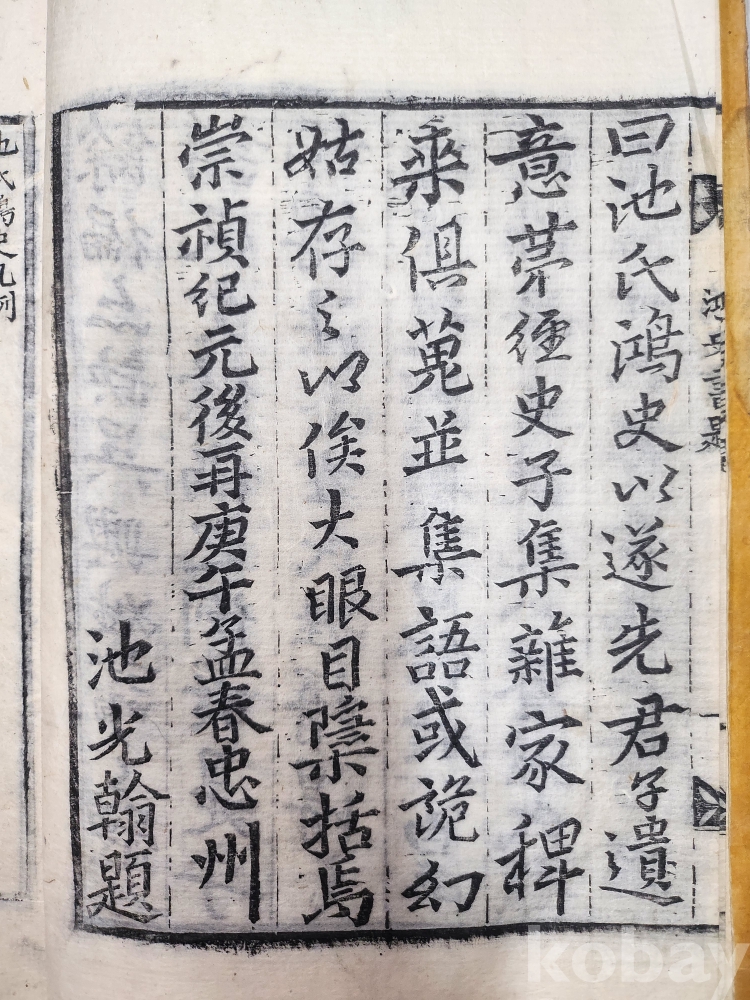 曰池氏鴻史以遂先君子遺
意茅經史子集雜家稗
乘俱蒐並集語或詭幻
姑存之以俟大眼目檃括焉
崇禎紀元後再庚午孟春忠州
池光翰題
池氏鴻史凡例
kobay